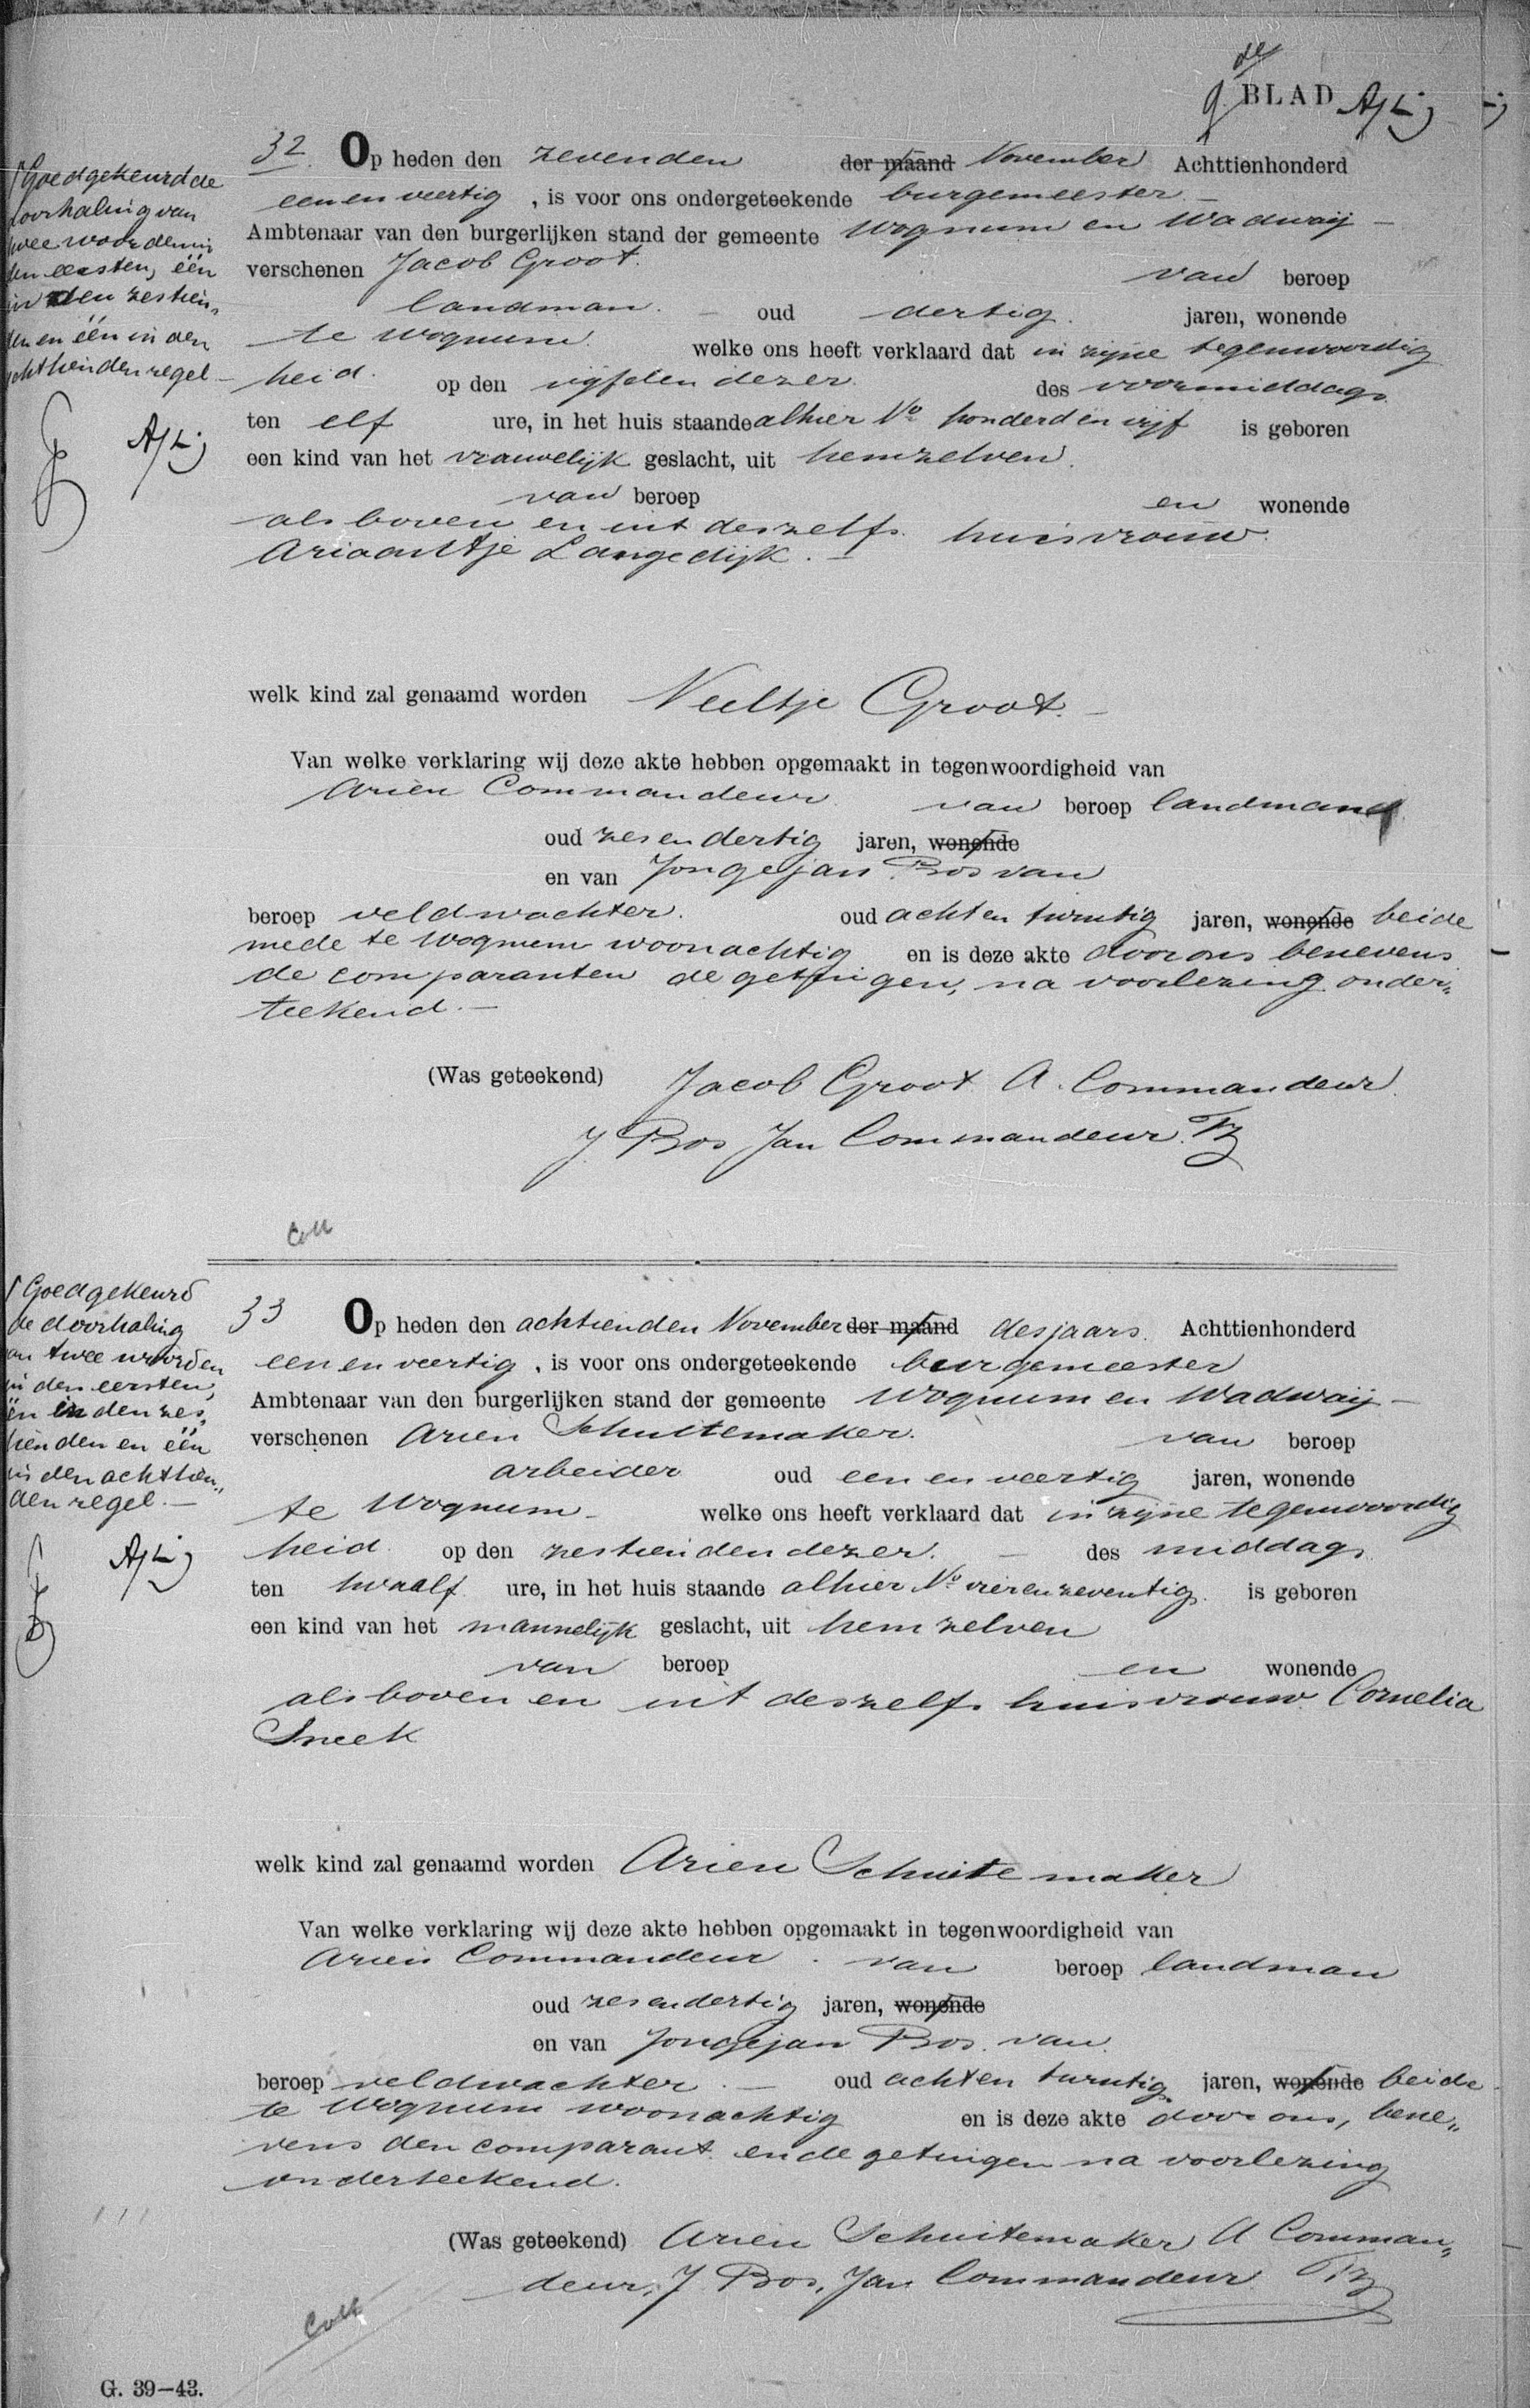 9 de BLAD
Goedgekeurd de
doorhaling van
twee woorden in
den eersten, één
in den zestien„
den en één in den
achttienden regel –
32. Op heden den zevenden der maand November Achttienhonderd
een en veertig, is voor ons ondergeteekende burgemeester –
Ambtenaar van den burgerlijken stand der gemeente Wognum en Wadwaij –
verschenen Jacob Groot. van beroep
landman. – oud dertig. jaren, wonende
te Wognum. welke ons heeft verklaard dat in zijne tegenwoordig
heid. op den vijfden dezer. des voormiddags
ten elf ure, in het huis staande alhier No honderd en vijf is geboren
een kind van het vrouwelijk geslacht, uit hemzelven.
van beroep en wonende
als boven en uit deszelfs huisvrouw
Ariaantje Langedijk. –
welk kind zal genaamd worden Neeltje Groot. –
Van welke verklaring wij deze akte hebben opgemaakt in tegenwoordigheid van
Ariën Commandeur van beroep landman
oud zes en dertig jaren, wonende
en van Jongejan Bos van
beroep veldwachter. oud acht en twintig jaren, wonende beide
mede te Wognum woonachtig en is deze akte door ons benevens
de comparanten de getuigen, na voorlezing onder„
teekend. –
(Was geteekend) Jacob Groot A. Commandeur
J Bos Jan Commandeur Pz
Coll
Goedgekeurd
de doorhaling
van twee woorden
in den eersten,
één in den zes„
tienden en één
in den achttien„
den regel. –
33 Op heden den achttienden November der maand des jaars Achttienhonderd
een en veertig, is voor ons ondergeteekende burgemeester
Ambtenaar van den burgerlijken stand der gemeente Wognum en Wadwaij –
verschenen Arien Schuitemaker. van beroep
arbeider oud een en veertig jaren, wonende
te Wognum – welke ons heeft verklaard dat in zijne tegenwoordig
heid. op den zestienden dezer. – des middags
ten twaalf ure, in het huis staande alhier No vier en zeventig. is geboren
een kind van het mannelijk geslacht, uit hem zelven
van beroep en wonende
als boven en uit deszelfs huisvrouw Cornelia
Sneek
welk kind zal genaamd worden Arien Schuitemaker
Van welke verklaring wij deze akte hebben opgemaakt in tegenwoordigheid van
Arien Commandeur van beroep landman
oud zes en dertig jaren, wonende
en van Jongejan Bos. van
beroep veldwachter. – oud acht en twintig jaren, wonende beide
te Wognum woonachtig en is deze akte door ons, bene„
vens den comparant en de getuigen na voorlezing
onderteekend.
(Was geteekend) Arien Schuitemaker A Comman„
deur, J Bos, Jan Commandeur Pz
Coll
G. 39–43.